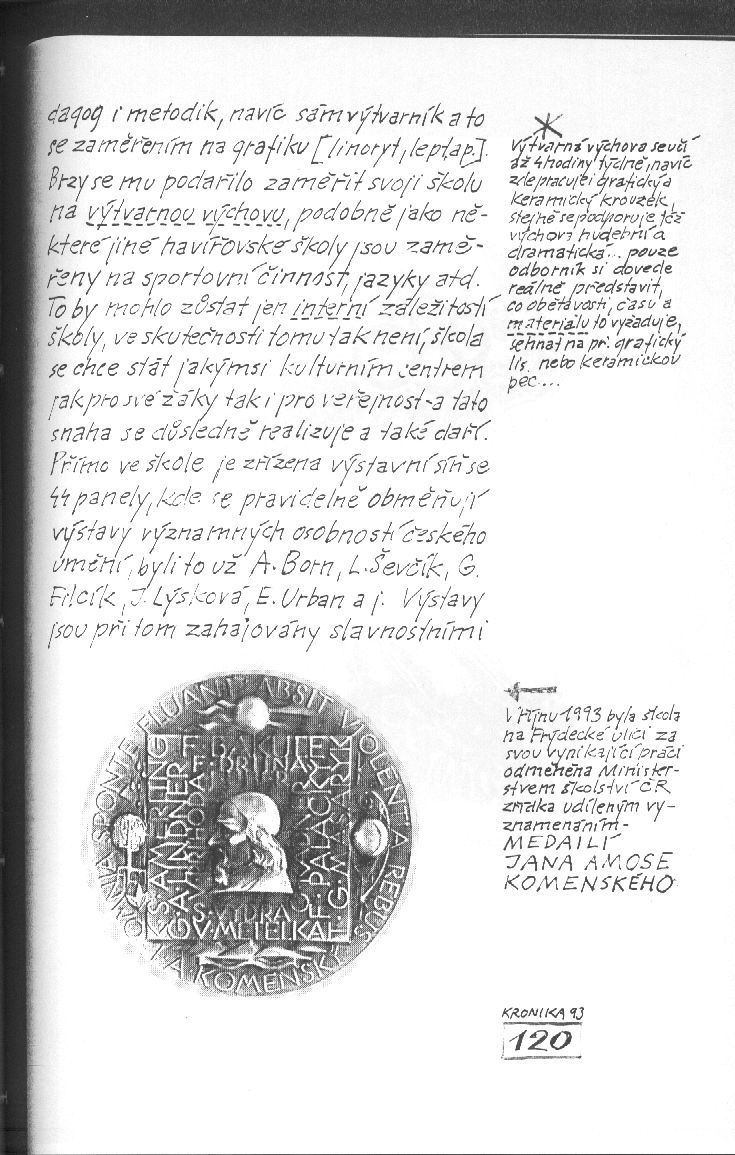 dagog i metodik, navíc sám výtvarník a to
se zaměřením na grafiku [linoryt, lept ap.].
Brzy se mu podařilo zaměřit svoji školu
na výtvarnou výchovu, podobně jako ně-
které jiné havířovské školy jsou zamě-
řeny na sportovní činnost, jazyky atd.
To by mohlo zůstat jen interní záležitostí
školy, ve skutečnosti tomu tak není, škola
se chce stát jakýmsi kulturním centrem
jak pro své žáky tak i pro veřejnost - a tato
snaha se důsledně realizuje a také daří.
Přímo ve škole je zřízena výstavní síň se
44 panely, kde se pravidelně obměňují
výstavy významných osobností českého
umění, byli to už A. Born, L. Ševčík, G.
Filcík, J. Lýsková, E. Urban a j. Výstavy
jsou při tom zahajovány slavnostními
Výtvarná výchova se učí
až 4 hodiny týdně, navíc
zde pracuje i grafický a
keramický kroužek,
stejně se podporuje též
výchova hudební a
dramatická... pouze
odborník si dovede
reálně představit,
co obětavosti, času a
materiálu to vyžaduje,
sehnat na př. grafický
lis, nebo keramickou
pec...
V říjnu 1993 byla škola
na Frýdecké ulici za
svou vynikající práci
odměněna Minister-
stvem školství ČR
zřídka udíleným vy-
znamenáním -
MEDAILÍ
JANA AMOSE
KOMENSKÉHO
OMNIA SPONTE FLUANT ABSIT VIOLENTIA REBUS
J. A. KOMENSKÝ
F. BAKULE
F. DRTINA
S. VYDRA
V. METELKA
F. PALACKÝ
T. G. MASARYK
KRONIKA 93
120